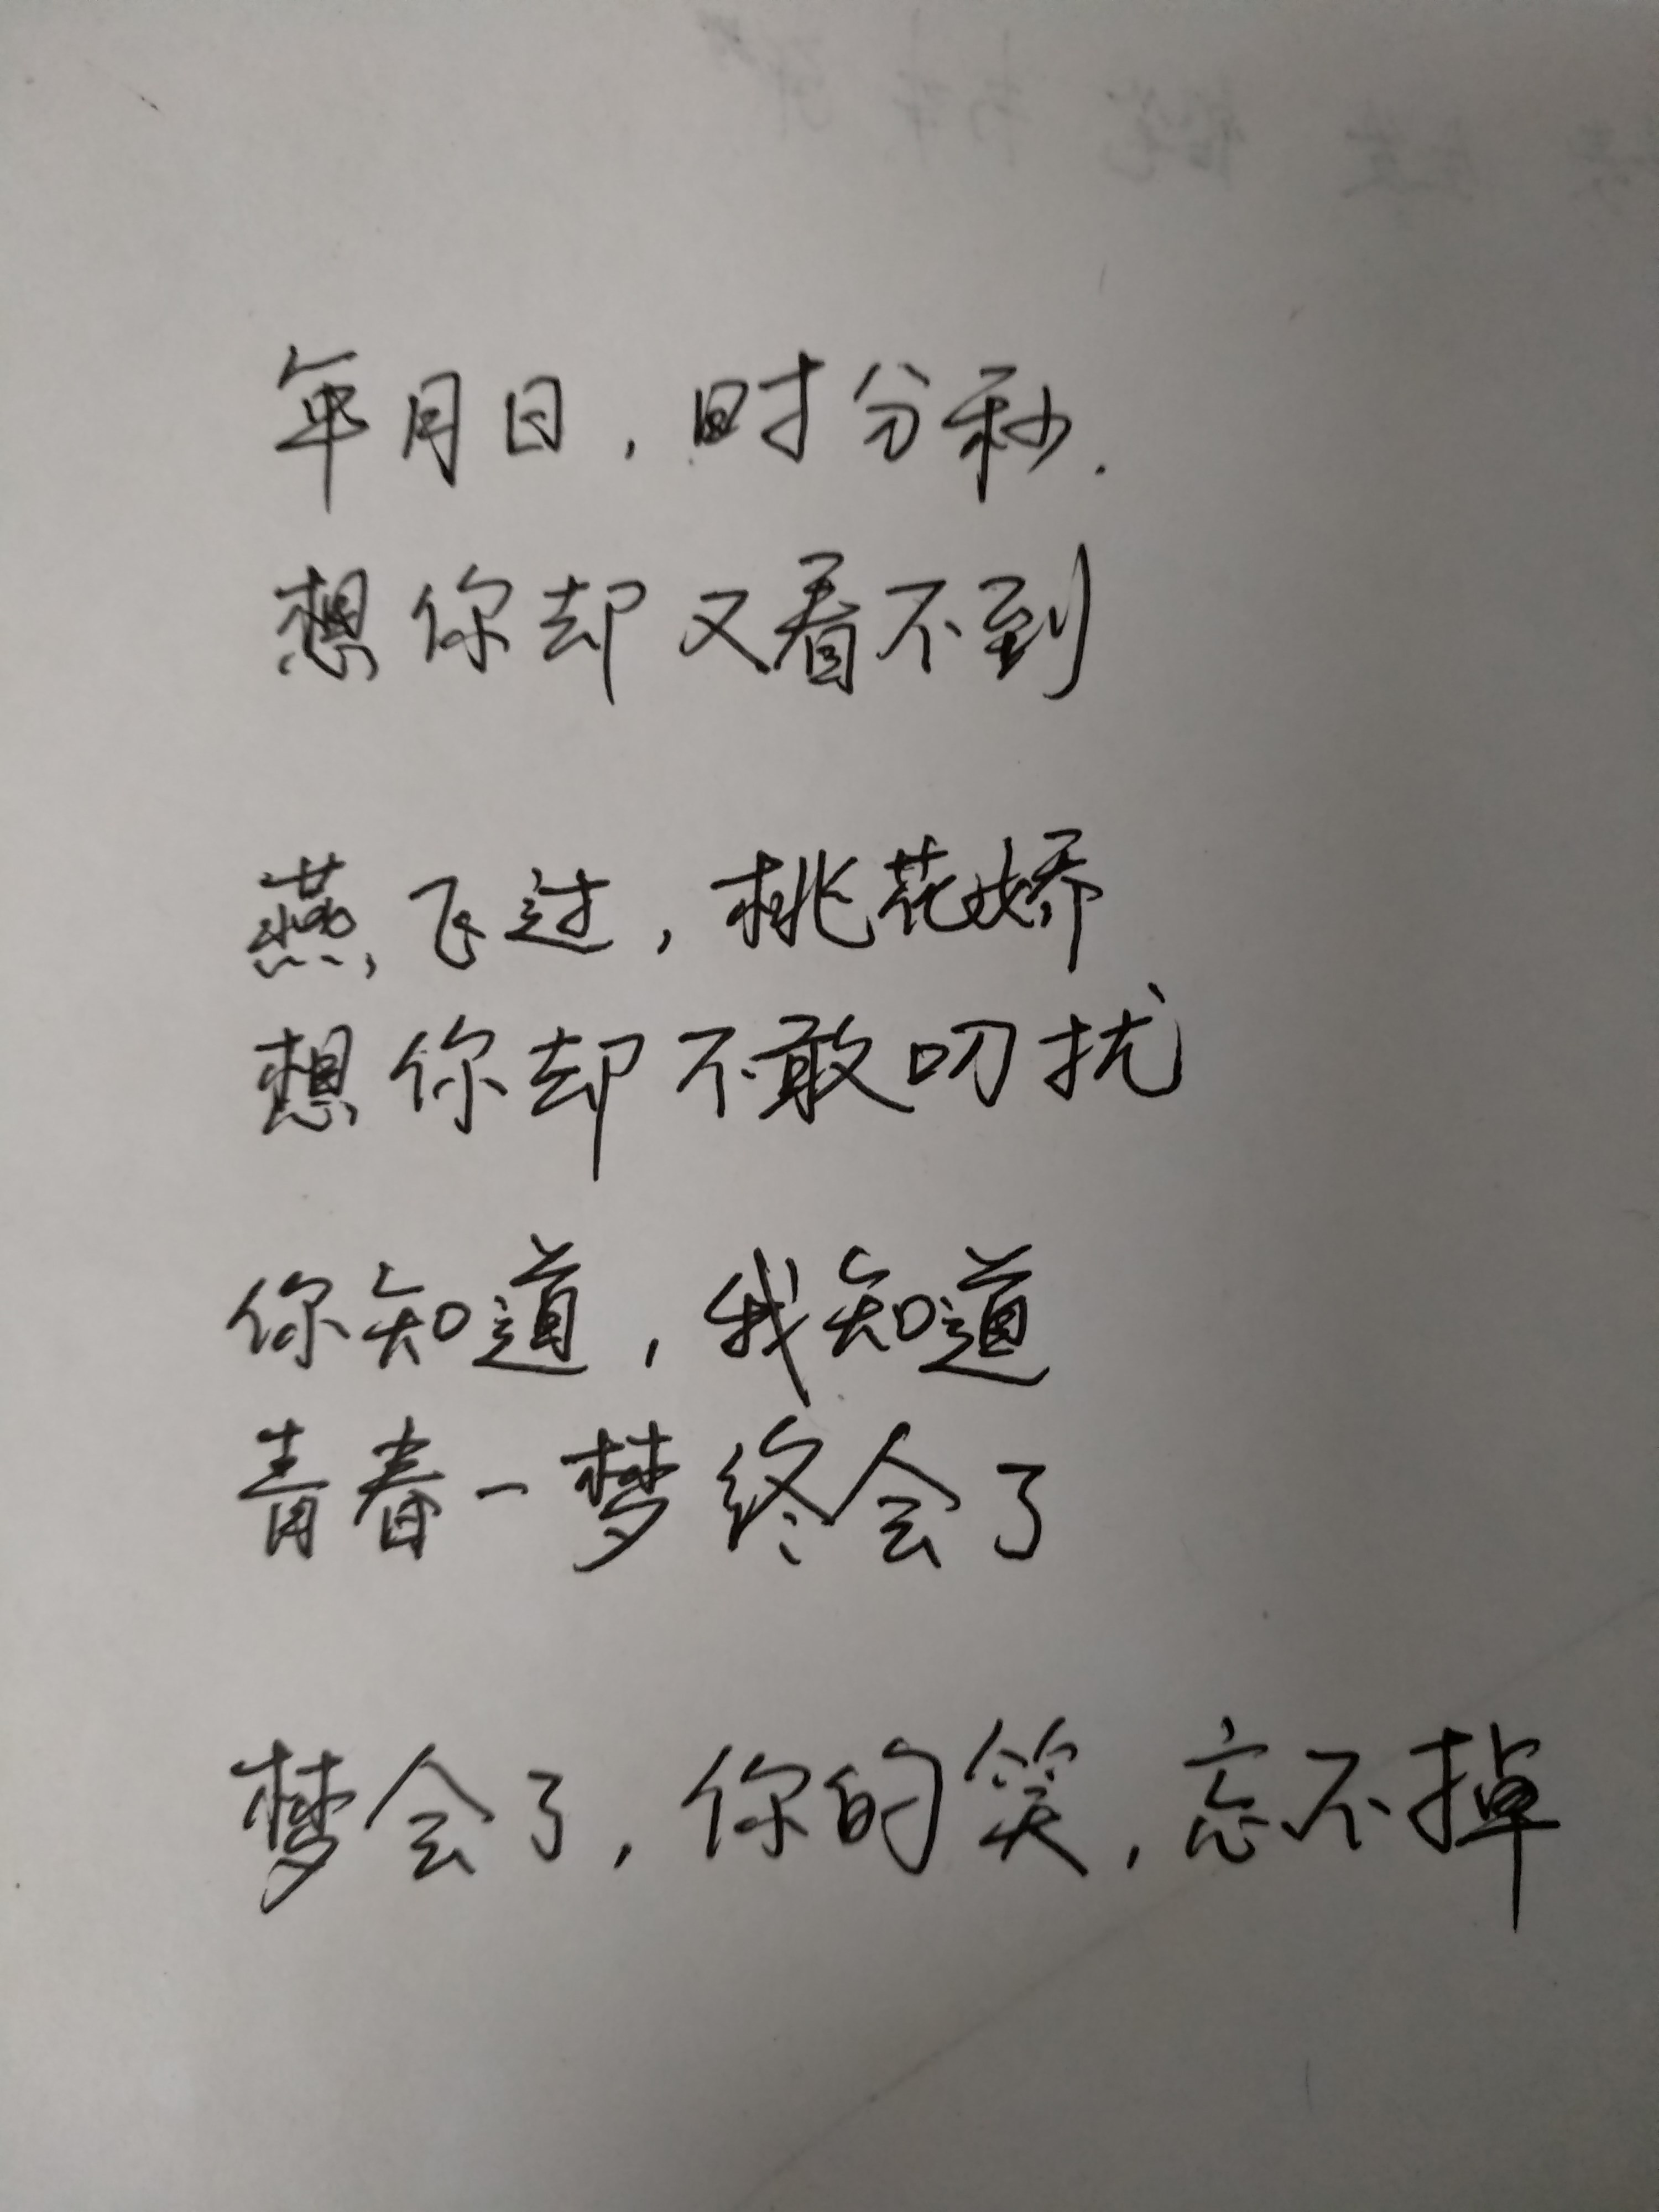 年月日，时分秒.
想你却又看不到
燕飞过，桃花娇
想你却不敢叨扰
你知道，我知道
青春一梦终会了
梦会了，你的笑，忘不掉